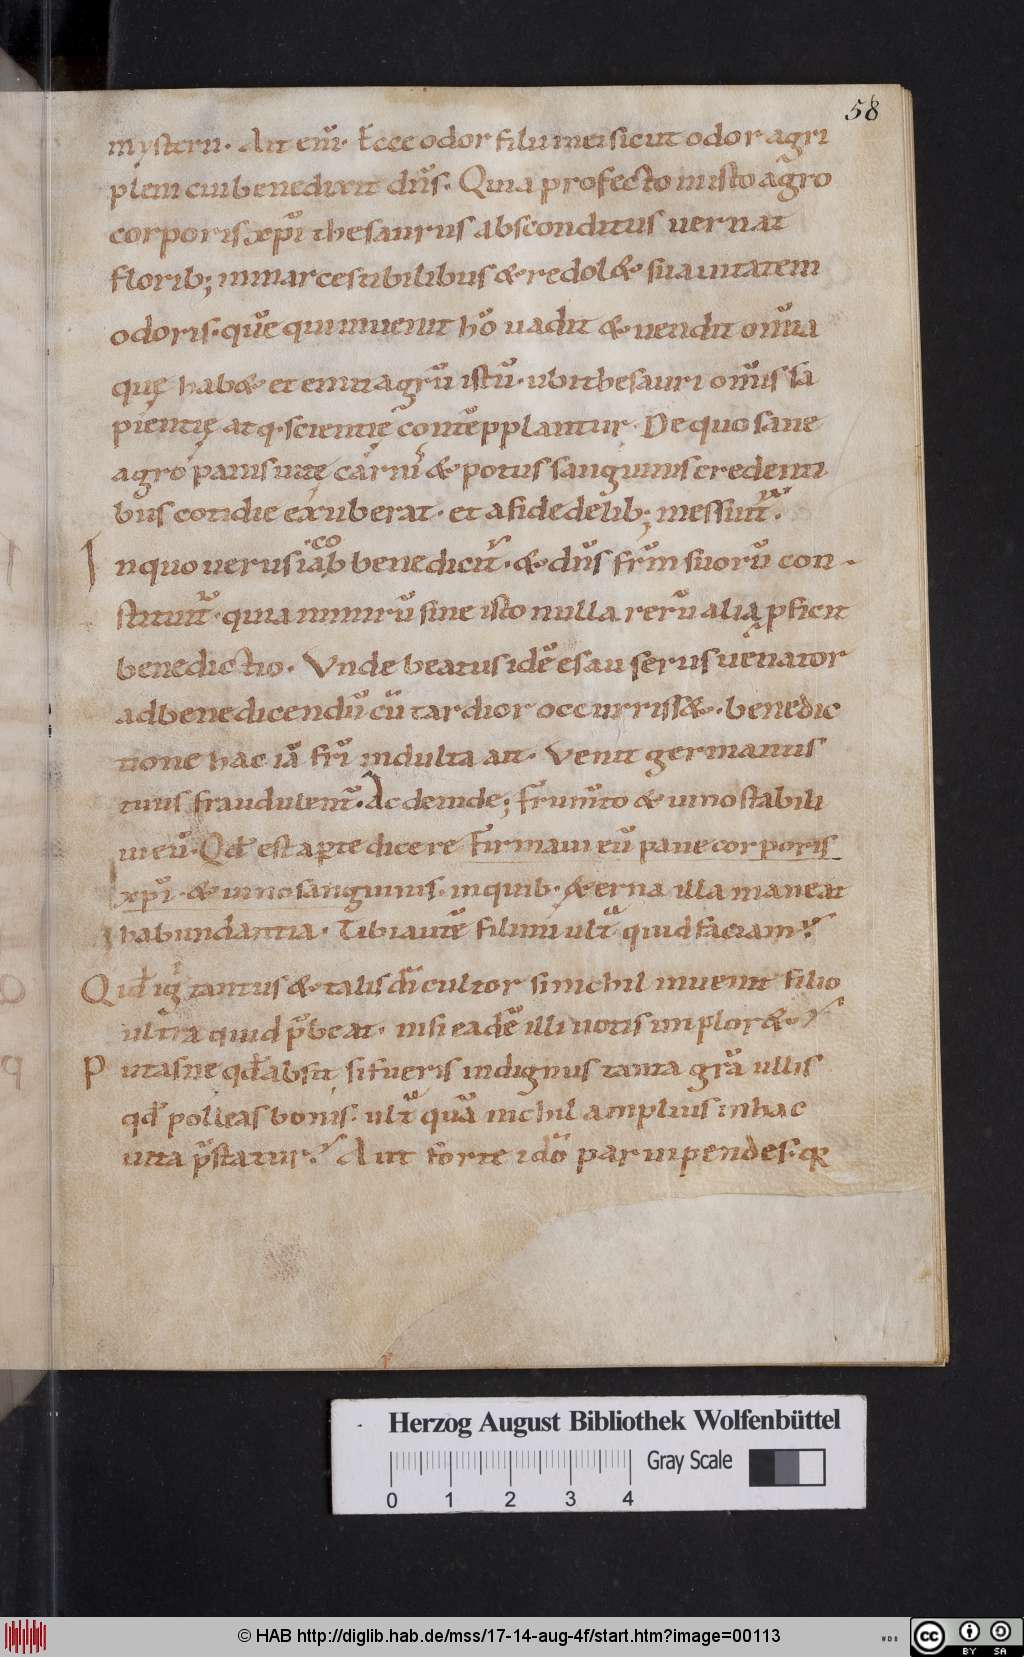 58
mysterii. Ait enī. Ecce odor filii mei sicut odor agri
pleni cui benedixit dn̄s. Quia profecto in isto agro
corporis xp̄i thesaurus absconditus uernat
florib; inmarcestibilibus & redol& suauitatem
odoris. quē qui inuenit hō uadit & uendit om̄ia
quę hab& et emit agrū istū. ubi thesauri om̄is sa
pientię atq. scientię contēpplantur. De quo sane
agro panis uitę carnis & potus sanguinis credenti
bus cotidie exuberat. et a fidedelib; messuit̄.
In quo uerus iacob benedicit̄. & dn̄s frm̄ suorū con-
stituit̄. quia nimirū sine isto nulla rerū alia pficit
benedictio. Vnde beatus idē esau serus uenator
ad benedicendū cū tardior occurriss&. benedic
tione hac iā fr̄i indulta ait. Venit germanus
tuus fraudulent̄. Ac deinde; Frum̄to & uino stabili
ui eū. Qd̄ est aperte dicere Firmaui eū pane corporis
xp̄i. & uino sanguinis. in quib. &erna illa maneat
habundantia. Tibi autē fili mi ult̄ quid faciam?
Qid ig tantus & talis di cultor si nichil inuenit filio
ultra quid p̄beat. nisi eadē illi uotis implor&?
Putasne qd̄ absit si fueris indignus tanta gr̄a ullis
qd̄ polleas bonis. ult̄ quā nichil amplius in hac
uita p̄statur? Aut forte idō paruipendes. q
Herzog August Bibliothek Wolfenbüttel
Gray Scale
0 1 2 3 4
© HAB http://diglib.hab.de/mss/17-14-aug-4f/start.htm?image=00113
WDB
cc BY SA